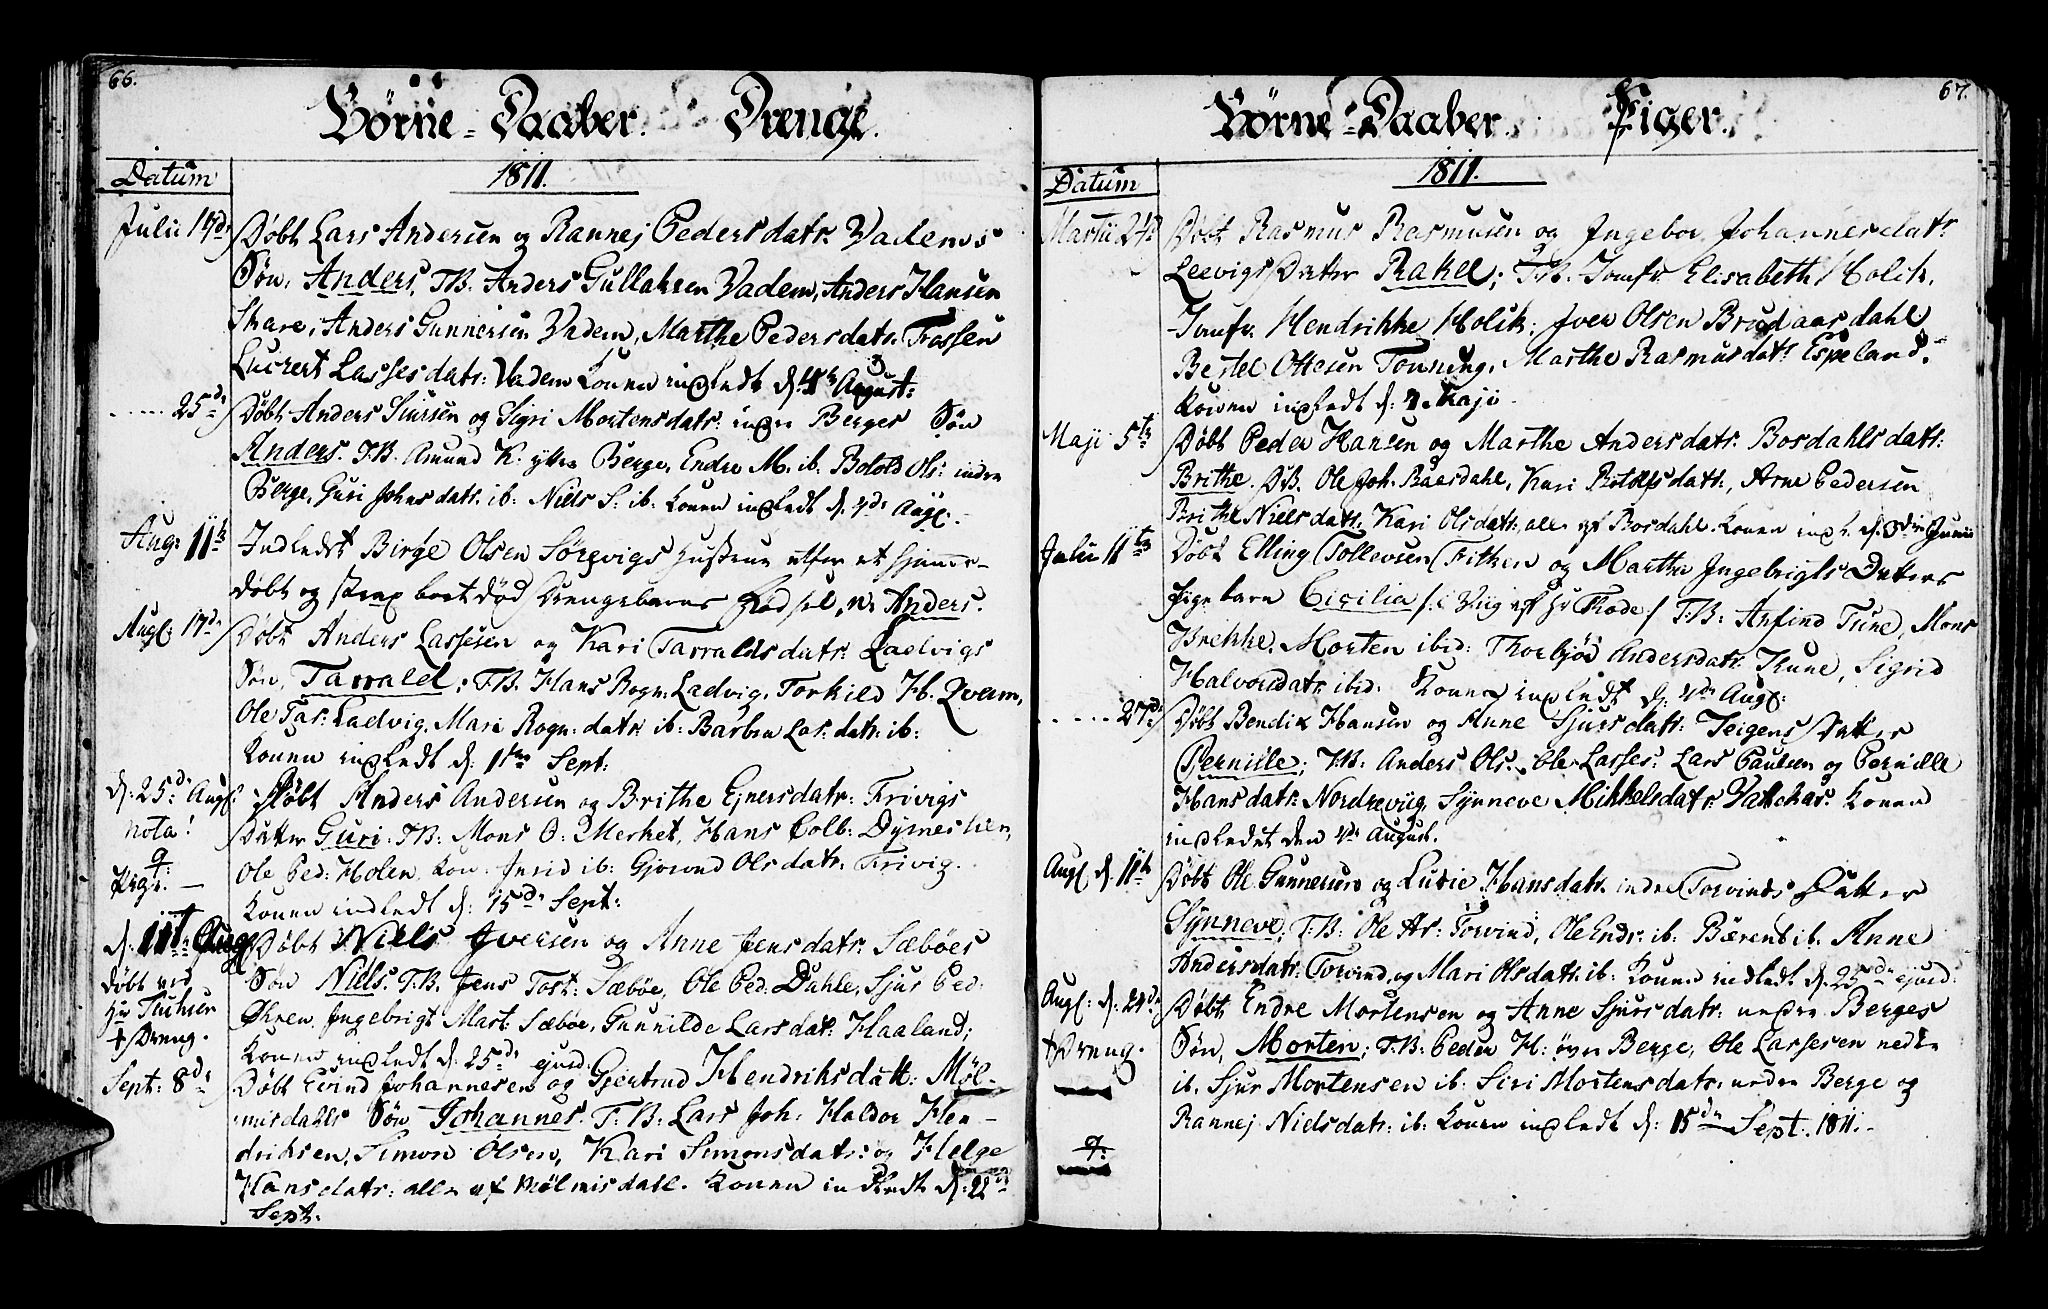 66.
Börne-Daaber. Drenge.
Datum
1811.
Julii 14d: Døbt Lars Andersen og Rannej Pedersdatr: Vadems
Søn, Anders, T.B. Anders Gullaksen Vadem, Anders Hansen
Skare, Anders Gunnersen Vadem, Marthe Pedersdatr: Frossen
Lucret Lassesdatr: Vadem Konen indledt d: August:
..... 25d: Døbt Anders Siursen og Sigri Mortensdatr: indre Berges Søn
Anders. T.B. Amund K. yttre Berge, Endre M. ib. Botold Ols: indre
Berge, Guri Johnsdatr. ib: Niels S. ib. Konen indledt d. 4d: Augs:
Aug: 11te Indledt Birge Olsen Sørevigs Hustrue efter et hjemme-
døbt og strax bort død Drengebarns Fødsel, n: Anders.
Augs: 17d: Døbt Anders Lassesen og Kari Tarraldsdatr: Ladvigs
Søn, Tarrald; T.B. Hans Rogn: Ladvig, Torkild H. Qvam,
Ole Tar: Ladvig, Mari Rogn: datr: ib: Barbra Las: datr: ib:
Konen indledt d: 1ste Sept:
d: 25d: Augs: Døbt Anders Andersen og Brithe Ejnersdatr: Frivigs
nota! Datter Guri. T.B: Mons O: Merket, Hans Colb: Dyrneslien,
q: Pige. — Ole Ped: Holen, Jorid ib: Gjørond Olsdatr: Frivig.
Konen indledt d: 15d: Sept:
d: 11t: Aug: Døbt Niels Iversen og Anne Jensdatr: Sæbøes
Døbt ved Søn Niels. T.B. Jens Tost: Sæbøe, Ole Ped: Dahle, Sjur Ped:
Hr Øhren, Ingebrigt Mart: Sæbøe, Gunnilde Larsdatr: Haaland;
† Dreng. Konen indledt d: 25d: ejusd:
Sept: 8d: Døbt Eivind Johannesen og Gjertrud Hendriksdatt: Møl-
misdahls Søn Johannes. T.B: Lars Joh: Haldor Hen-
driksen, Simon Olsen, Kari Simonsdatr: og Helge
Hansdatr: alle af Mølmisdahl. Konen indledt d: 22de
Sept:
67.
Börne-Daaber. Piger.
Datum
1811.
Martii 24d Døbt Rasmus Rasmusen og Ingebor Johannesdatr
Leevigs Datter Rakel; T.B. Jomfr. Elisabeth Holck,
Jomfr. Hendrikke Holck, Iver Olsen Brudaasdahl
Bertel Ottesen Tonning, Marthe Rasmusdatr Espeland.
Konen indledt d: 7. Maji.
Maji 5te Døbt Peder Hansen og Marthe Andersdatr. Bosdahls datt:
Brithe. T.B. Ole Joh. Baasdahl, Kari Rotolfsdatr., Arne Pedersen
Brithe Nielsdatr: Kari Olsdatr: alle af Bosdahl. Konen indl. d. 3die Junii
Julii 11te Døbt Elling Tollevsen Fitken og Marthe Ingebrigts Datters
Pigebarn Cicilia /: i Viig af Hr Thode:/ T.B: Anfind Tune, Mons
Brekke, Morten ibid: Thorbjør Andersdatr. Tune, Sigrid
Halvorsdatr: ibid: Konen indledt d: 4d: Augs:
..... 27d: Døbt Bendix Hansen og Anne Sjursdatr: Teigens Datter
Pernille; T.B. Anders Ols: Ole Lasses: Lars Paulsen og Pernille
Hansdatr: Nordreviig, Synneve Mikkelsdatr: Vattekar. Konen
indledet den 4d: August.
Augs d. 11te Døbt Ole Gunnersens og Lucie Hansdatr. indre Torvinds Datter
Synneve, T.B: Ole Ar: Torvind, Ole Endr: ib: Bærent ib. Anne
Andersdatr: Torvind og Mari Olsdatr: ib: Konen indledt d. 25d: ejusd:
Augs: d. 24d: Døbt Endre Mortensen og Anne Sjursdatr: nedre Berges
† Dreng. Søn, Morten; T.B: Peder H: øvre Berge, Ole Lassesen nedre
ib. Sjur Mortensen ib: Siri Mortensdatr: nedre Berge og
Rannej Nielsdatr: ib: Konen indledt d: 15de Sept. 1811.
q: